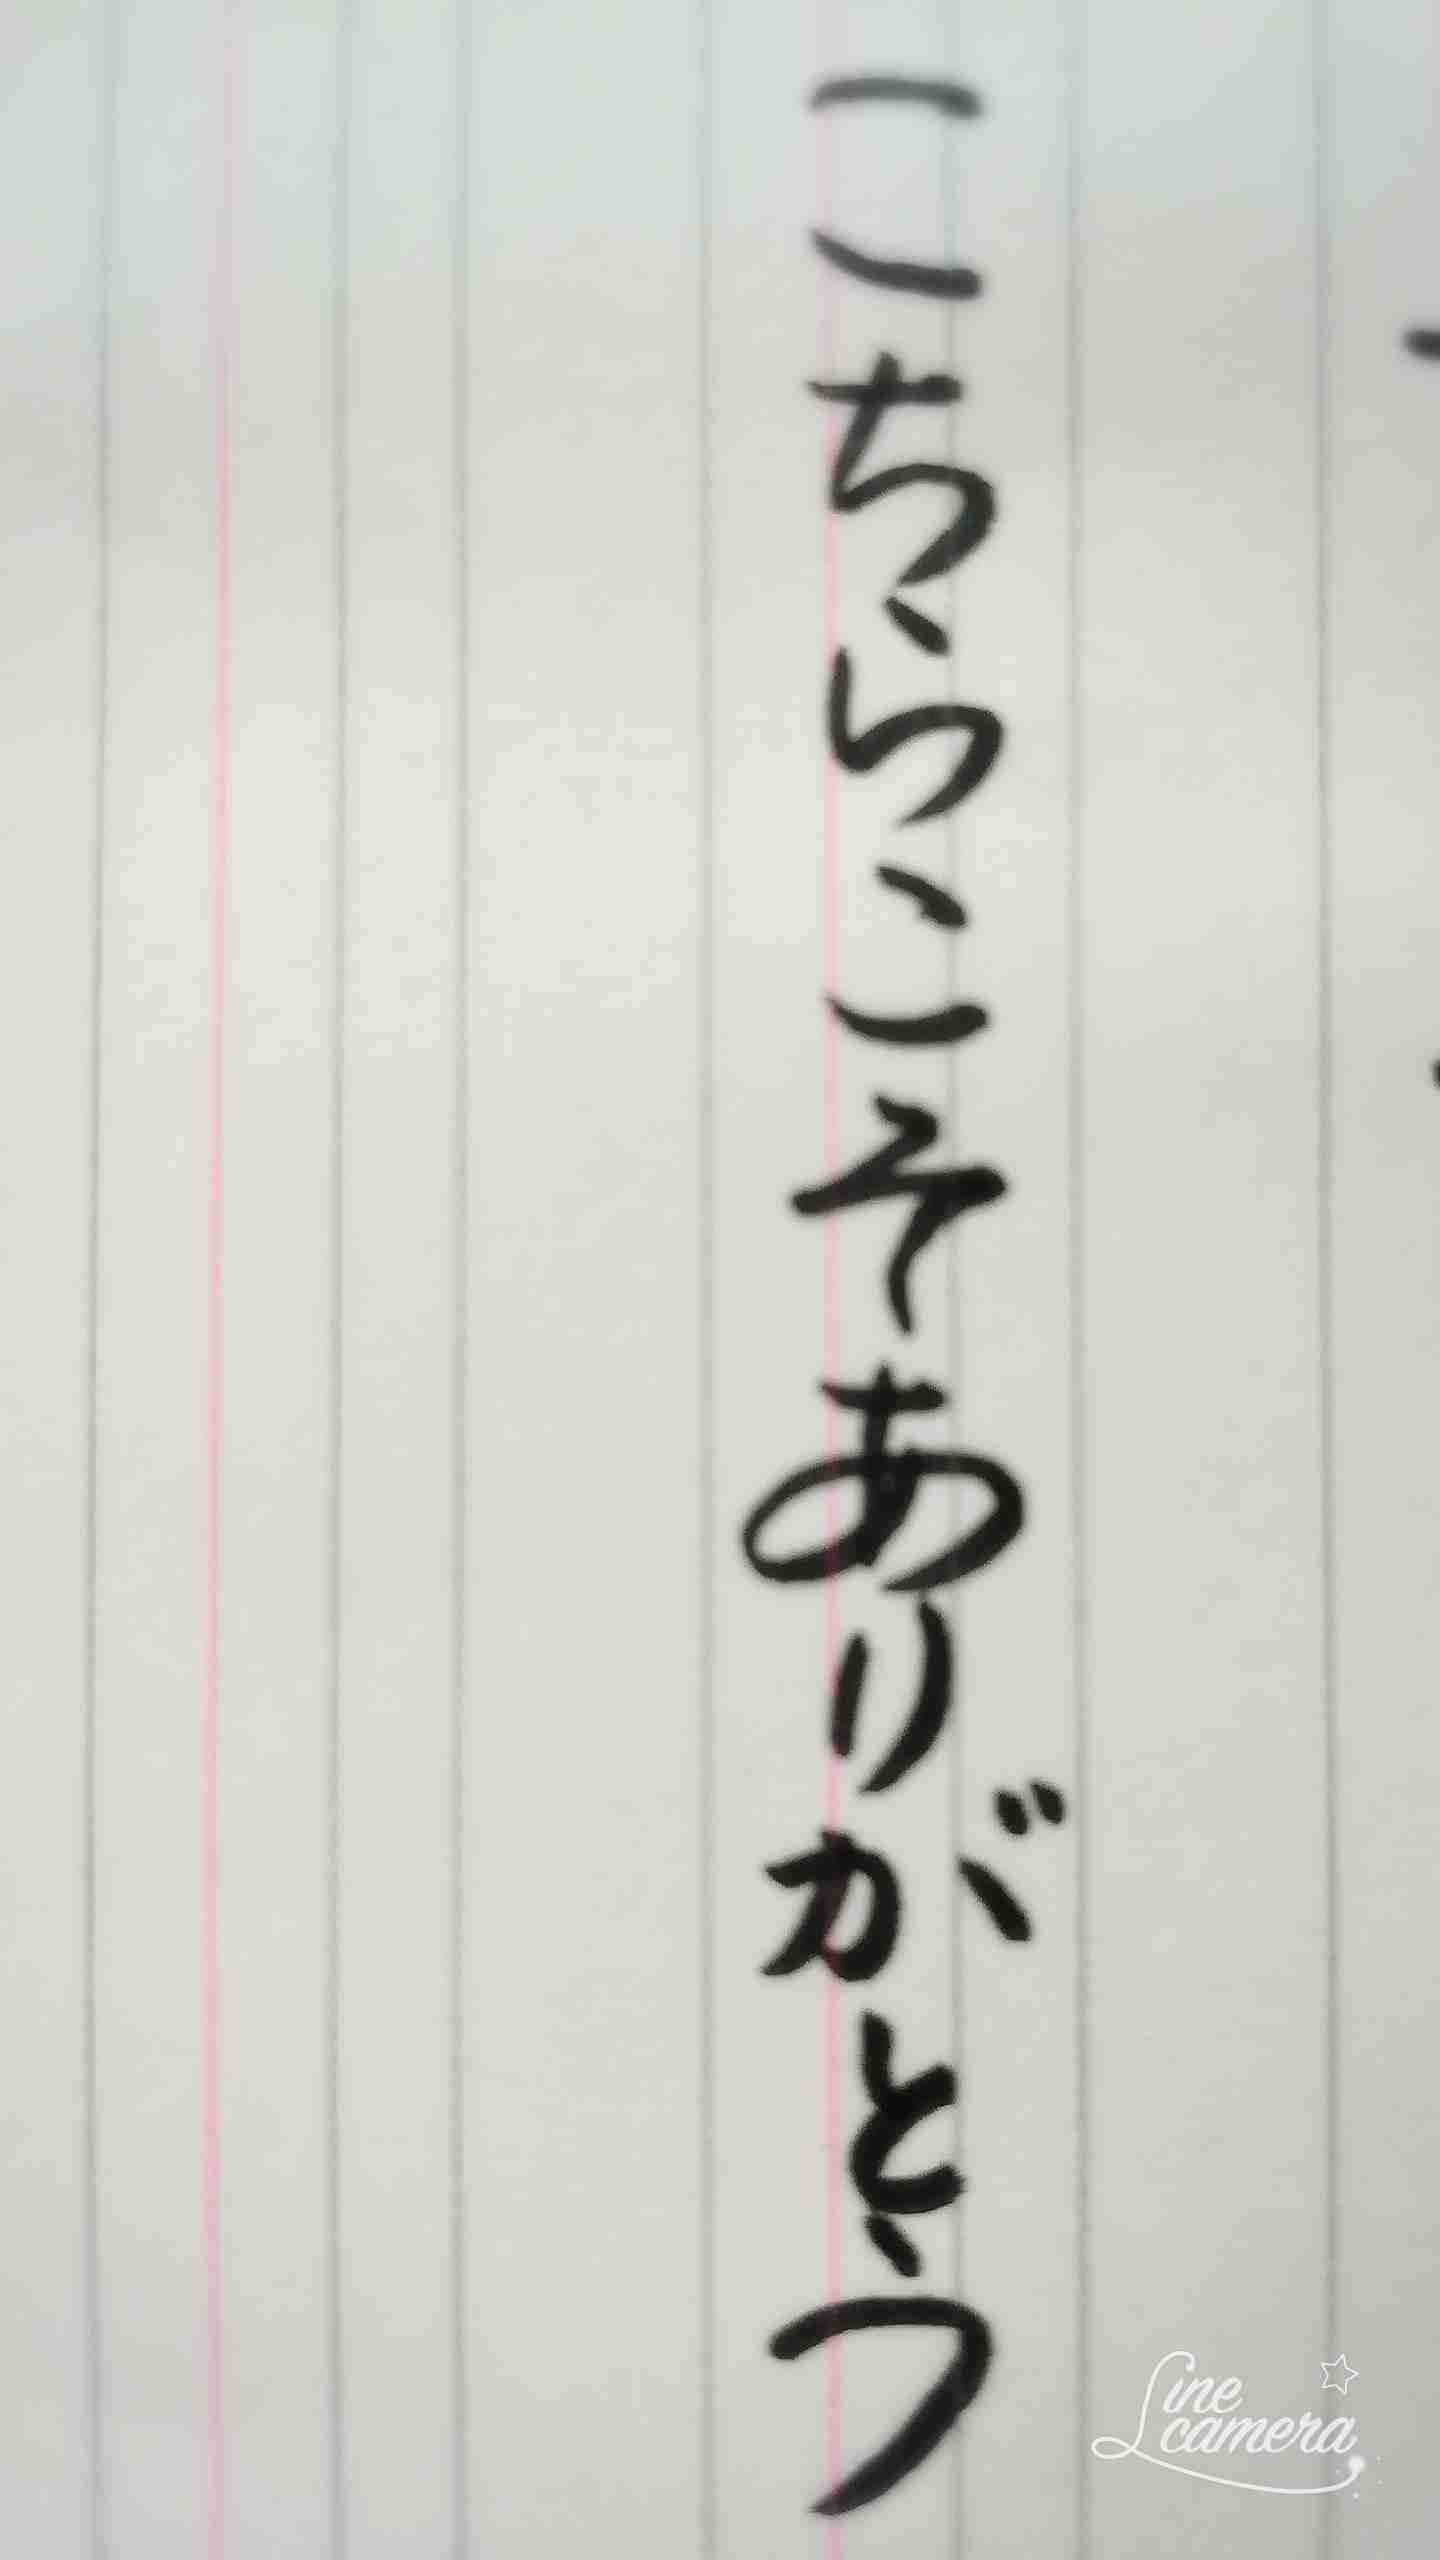 こちらこそありがとう
Line camera